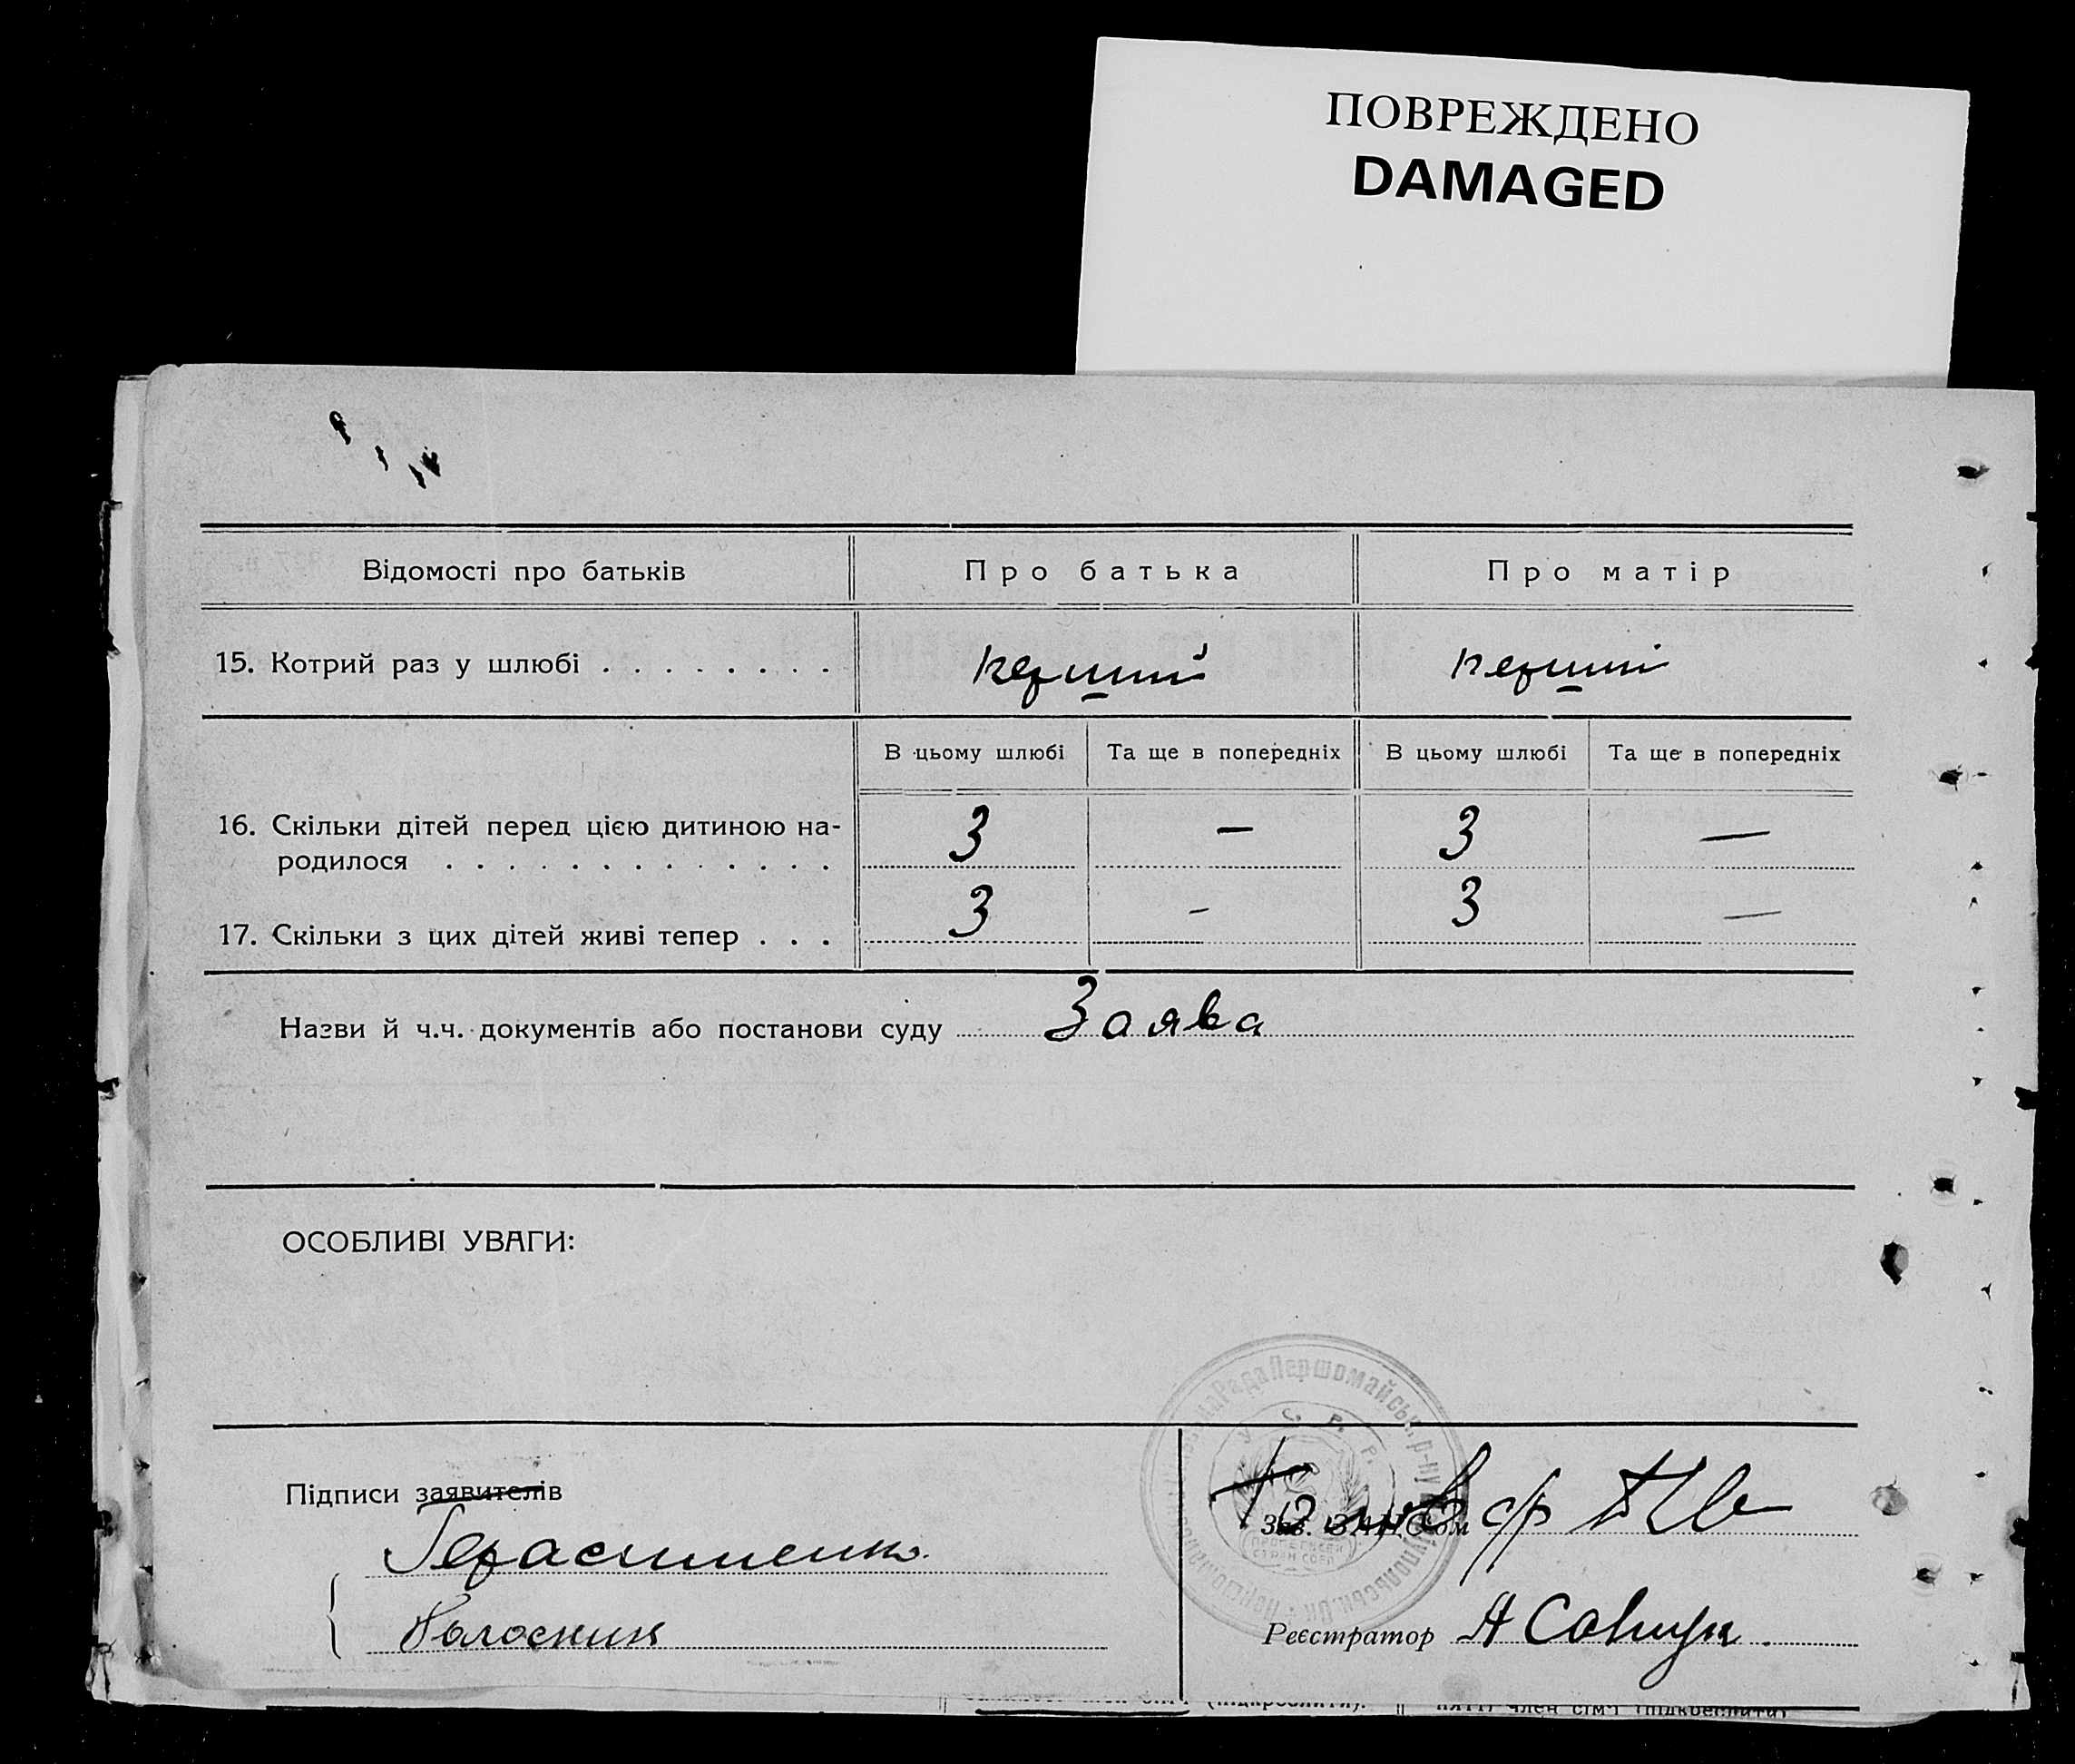 ПОВРЕЖДЕНО
DAMAGED
Відомості про батьків
Про батька
Про матір
15. Котрий раз у шлюбі . . . . . . . .
перший
перший
В цьому шлюбі
Та ще в попередніх
В цьому шлюбі
Та ще в попередніх
16. Скільки дітей перед цією дитиною на-
родилося . . . . . . . . . . . . .
3
—
3
—
17. Скільки з цих дітей живі тепер . . .
3
-
3
—
Назви й ч.ч. документів або постанови суду
Заява
ОСОБЛИВІ УВАГИ:
Рада Першомайськ. р-ну
У. С. Р. Р.
Підписи заявителів
Герасименко
Зав. ЗАГС'ом
Реєстратор
(підкреслити).
член сім'ї (підкреслити)